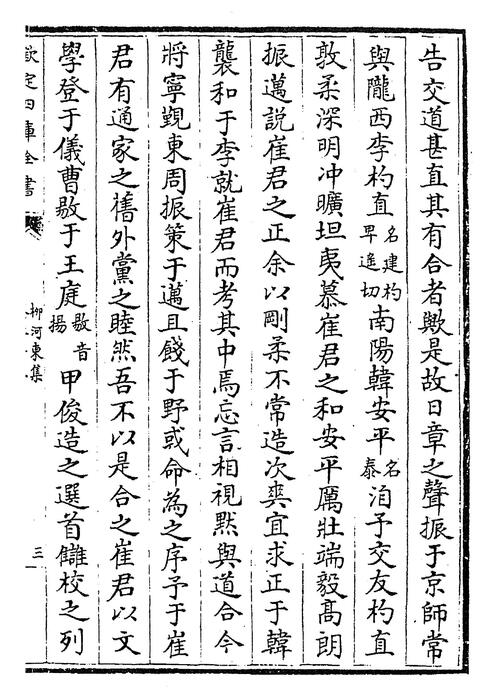 告交道甚直其有合者歟是故日章之聲振于京師常
與隴西李杓直名建杓卑遥切南陽韓安平名泰洎予交友杓直
敦柔深明冲曠坦夷慕崔君之和安平厲壯端毅髙朗
振邁説崔君之正余以剛柔不常造次爽宜求正于韓
襲和于李就崔君而考其中焉忘言相視黙與道合今
將寧覲東周振策于邁且餞于野或命為之序予于崔
君有通家之舊外黨之睦然吾不以是合之崔君以文
學登于儀曹敭于王庭敭音揚甲俊造之選首讎校之列
欽定四庫全書
柳河東集
三